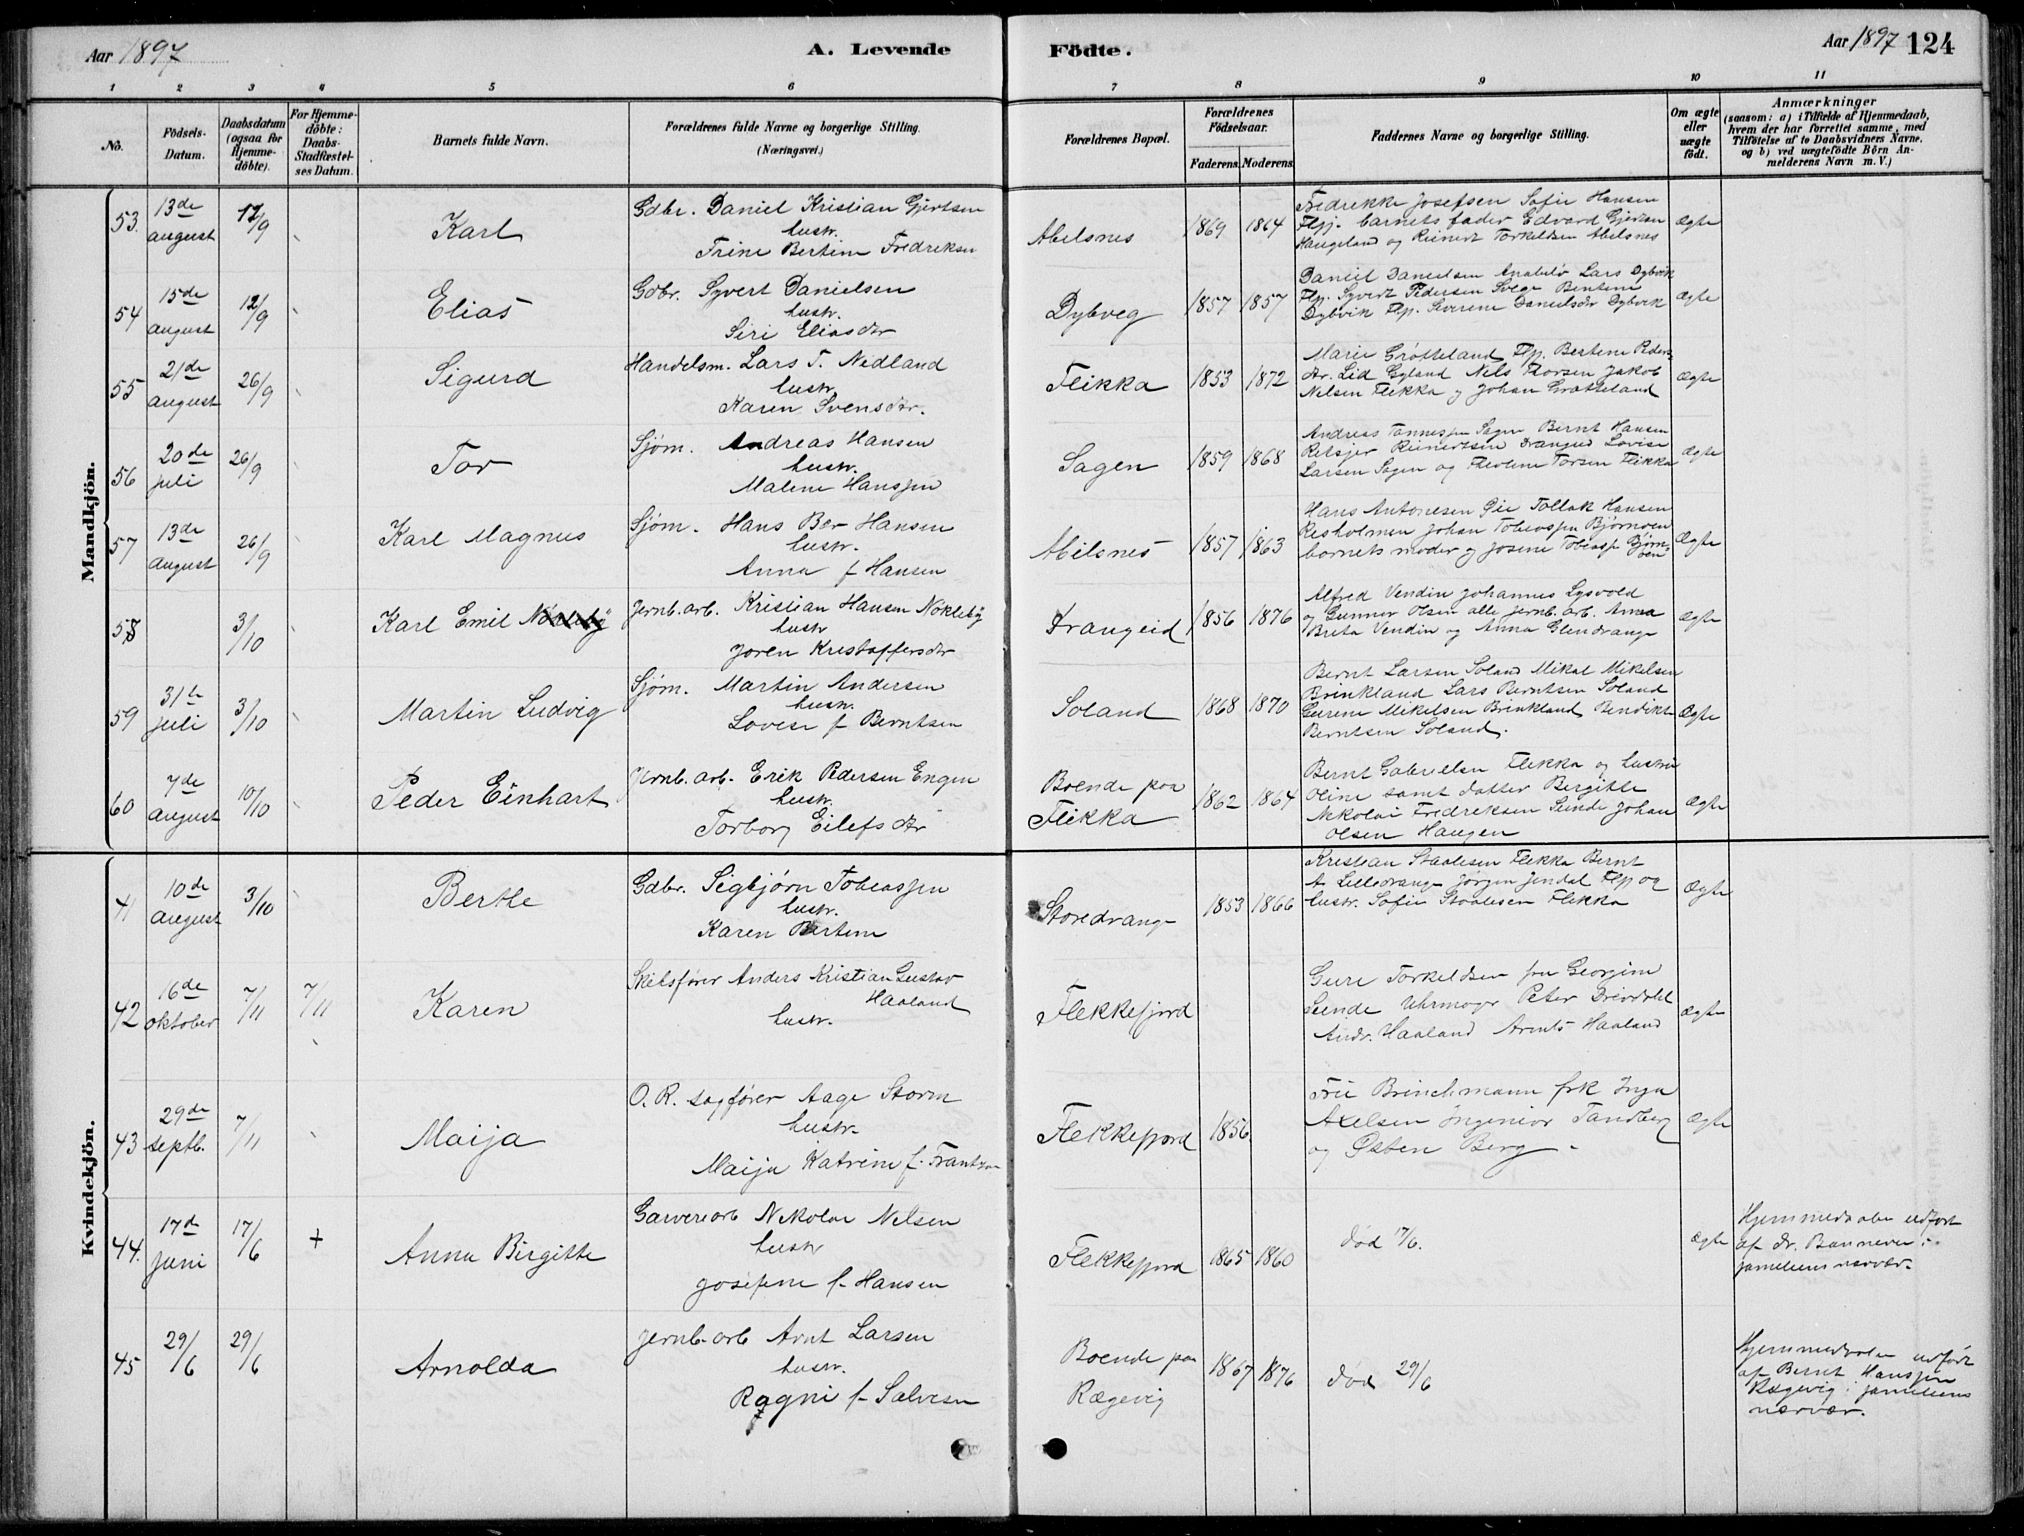 Aar 1897
A. Levende
Födte.
Aar 1897 124
1 2 3 4 5 6 7 8 9 10 11
No.
Födsels-
Datum.
Daabsdatum
(ogsaa for
Hjemme-
döbte).
For Hjemme-
döbte:
Daabs-
Stadfæstel-
ses Datum.
Barnets fulde Navn.
Forældrenes fulde Navne og borgerlige Stilling.
(Næringsvei.)
Forældrenes Bopæl.
Forældrenes
Födselsaar.
Faderens. Moderens.
Faddernes Navne og borgerlige Stilling.
Om ægte
eller
uægte
födt.
Anmærkninger
(saasom: a) i Tilfælde af Hjemmedaab,
hvem der har forrettet samme, med
Tilföielse af to Daabsvidners Navne,
og b) ved uægtefödte Börn An-
melderens Navn m. V.)
Mandkjön.
53. 13de august 12/9 Karl
Gdbr. Daniel Kristian Gjertsen
hustr.
Trine Bertine Fredriksen
Abelsnes 1869 1864
Fredrikke Josefsen Sofie Hansen
Flpj. barnets fader Edvard Gjertsen
Haugeland og Reinert Torkeldsen Abelsnes
Ægte
54 15de august 12/9 Elias
Gdbr. Syvert Danielsen
hustr.
Siri Eliasdtr
Dybveg 1857 1857
Daniel Danielsen Anabelø Lars Dybvik
Flp. Syvert Pedersen Svege Bentine
Dybvik Flp. Severine Danielsdr Dybvik
Ægte
55 21de august 26/9 Sigurd
Handelsm. Lars T. Nedland
hustr.
Karen Svensdtr.
Flikka 1853 1872
Marie Grøtteland Flp. Bertine Peders-
dtr. Lid Gyland Nils Thorsen Jakob
Nelsen Flikka og Johan Grøtteland
Ægte
56 20de juli 26/9 Tor
Sjøm. Andreas Hansen
hustr.
Malene Hanssen
Sagen 1859 1868
Andreas Tannessen Sagen Bernt Hansen
Reinertsen Drangeid Lovise
Larsen Sagen og Torsen Flikka
Ægte
57 13de august 26/9 Karl Magnus
Sjøm. Hans Ber Hansen
hustr.
Anna f Hansen
Abelsnes 1857 1863
Hans Antonesen Tollak Hansen
Resholmen Johan Tobiassen Bjørnoen
barnets moder og Josene Tobiass. Bjørn-
oen
Ægte
58 3/10 Karl Emil
Jernb.arb. Kristian Hansen Nökleby
hustr
Joren Kristoffersdtr
Drangeid 1856 1876
Alfred Vendin Johannes Lysvold
og Gunner Olsen alle jernb. arb. Anna
Breta Vendin og Anna Glendrange
Ægte
59 31te juli 3/10 Martin Ludvig
Sjøm. Martin Andersen
hustr.
Lovise f Berntsen
Soland 1868 1870
Bernt Larsen Soland Mikal Mikelsen
Brinkland Lars Berntsen Soland
Gurine Mikelsen Brinkland Bendikte
Berntsen Soland.
Ægte
60 7de august 10/10 Peder Einhart
Jernb. arb. Erik Pedersen Engen
hustr.
Torborg Eilefsdtr
Boende paa
Flikka 1862 1864
Bernt Gabrielsen Flikka og hustru
Oline samt datter Bergitte
Nikolai Fredriksen Sunde Johan
Olsen Haugen
Ægte
Kvindekjön.
41 10de august 3/10 Berthe
Gdbr. Sigbjørn Tobiassen
hustr.
Karen Bertine
Storedrange 1853 1866
Kristian Staalesen Flikka Bernt
A. Lilledrange Jörgen Jendal Flp og
hustr. Sofie Staalesen Flikka
Ægte
42 16de oktober 7/11 7/11 Karen
Skibsfører Anders Kristian Gustav
Haaland
hustr.
Flekkefjord
Gure Torkeldsen fru Georgine
Sunde Uhrmager Peter
Andr. Haaland Arnts Haaland
Ægte
43 29de septb. 7/11 Maija
O. R. sagfører Aage Storm
hustr.
Maija Katrine f. Frantzen
Flekkefjord 1856.
Brinchmann frk Inga
Axelsen Ingeniør Tandberg
og Østen Berg -
Ægte
44. 17d juni 17/6 + Anna Birgitte
Garverarb Nikolai Nelsen
hustr
Josefine f. Hansen
Flekkefjord 1865 1860
død 17/6.
Ægte
Hjemmedaaben udført
af dr. Bannevei i
familiens nærvær.
45 29/6 29/6 Arnolda
Jernb.arb Arnt Larsen
hustr.
Ragni f. Salvesen
Boende paa
Rægevig 1867 1876
død 29/6
Hjemmedaaben udført
af Bernt Hanssen
Rægevig i familiens
nærvær.